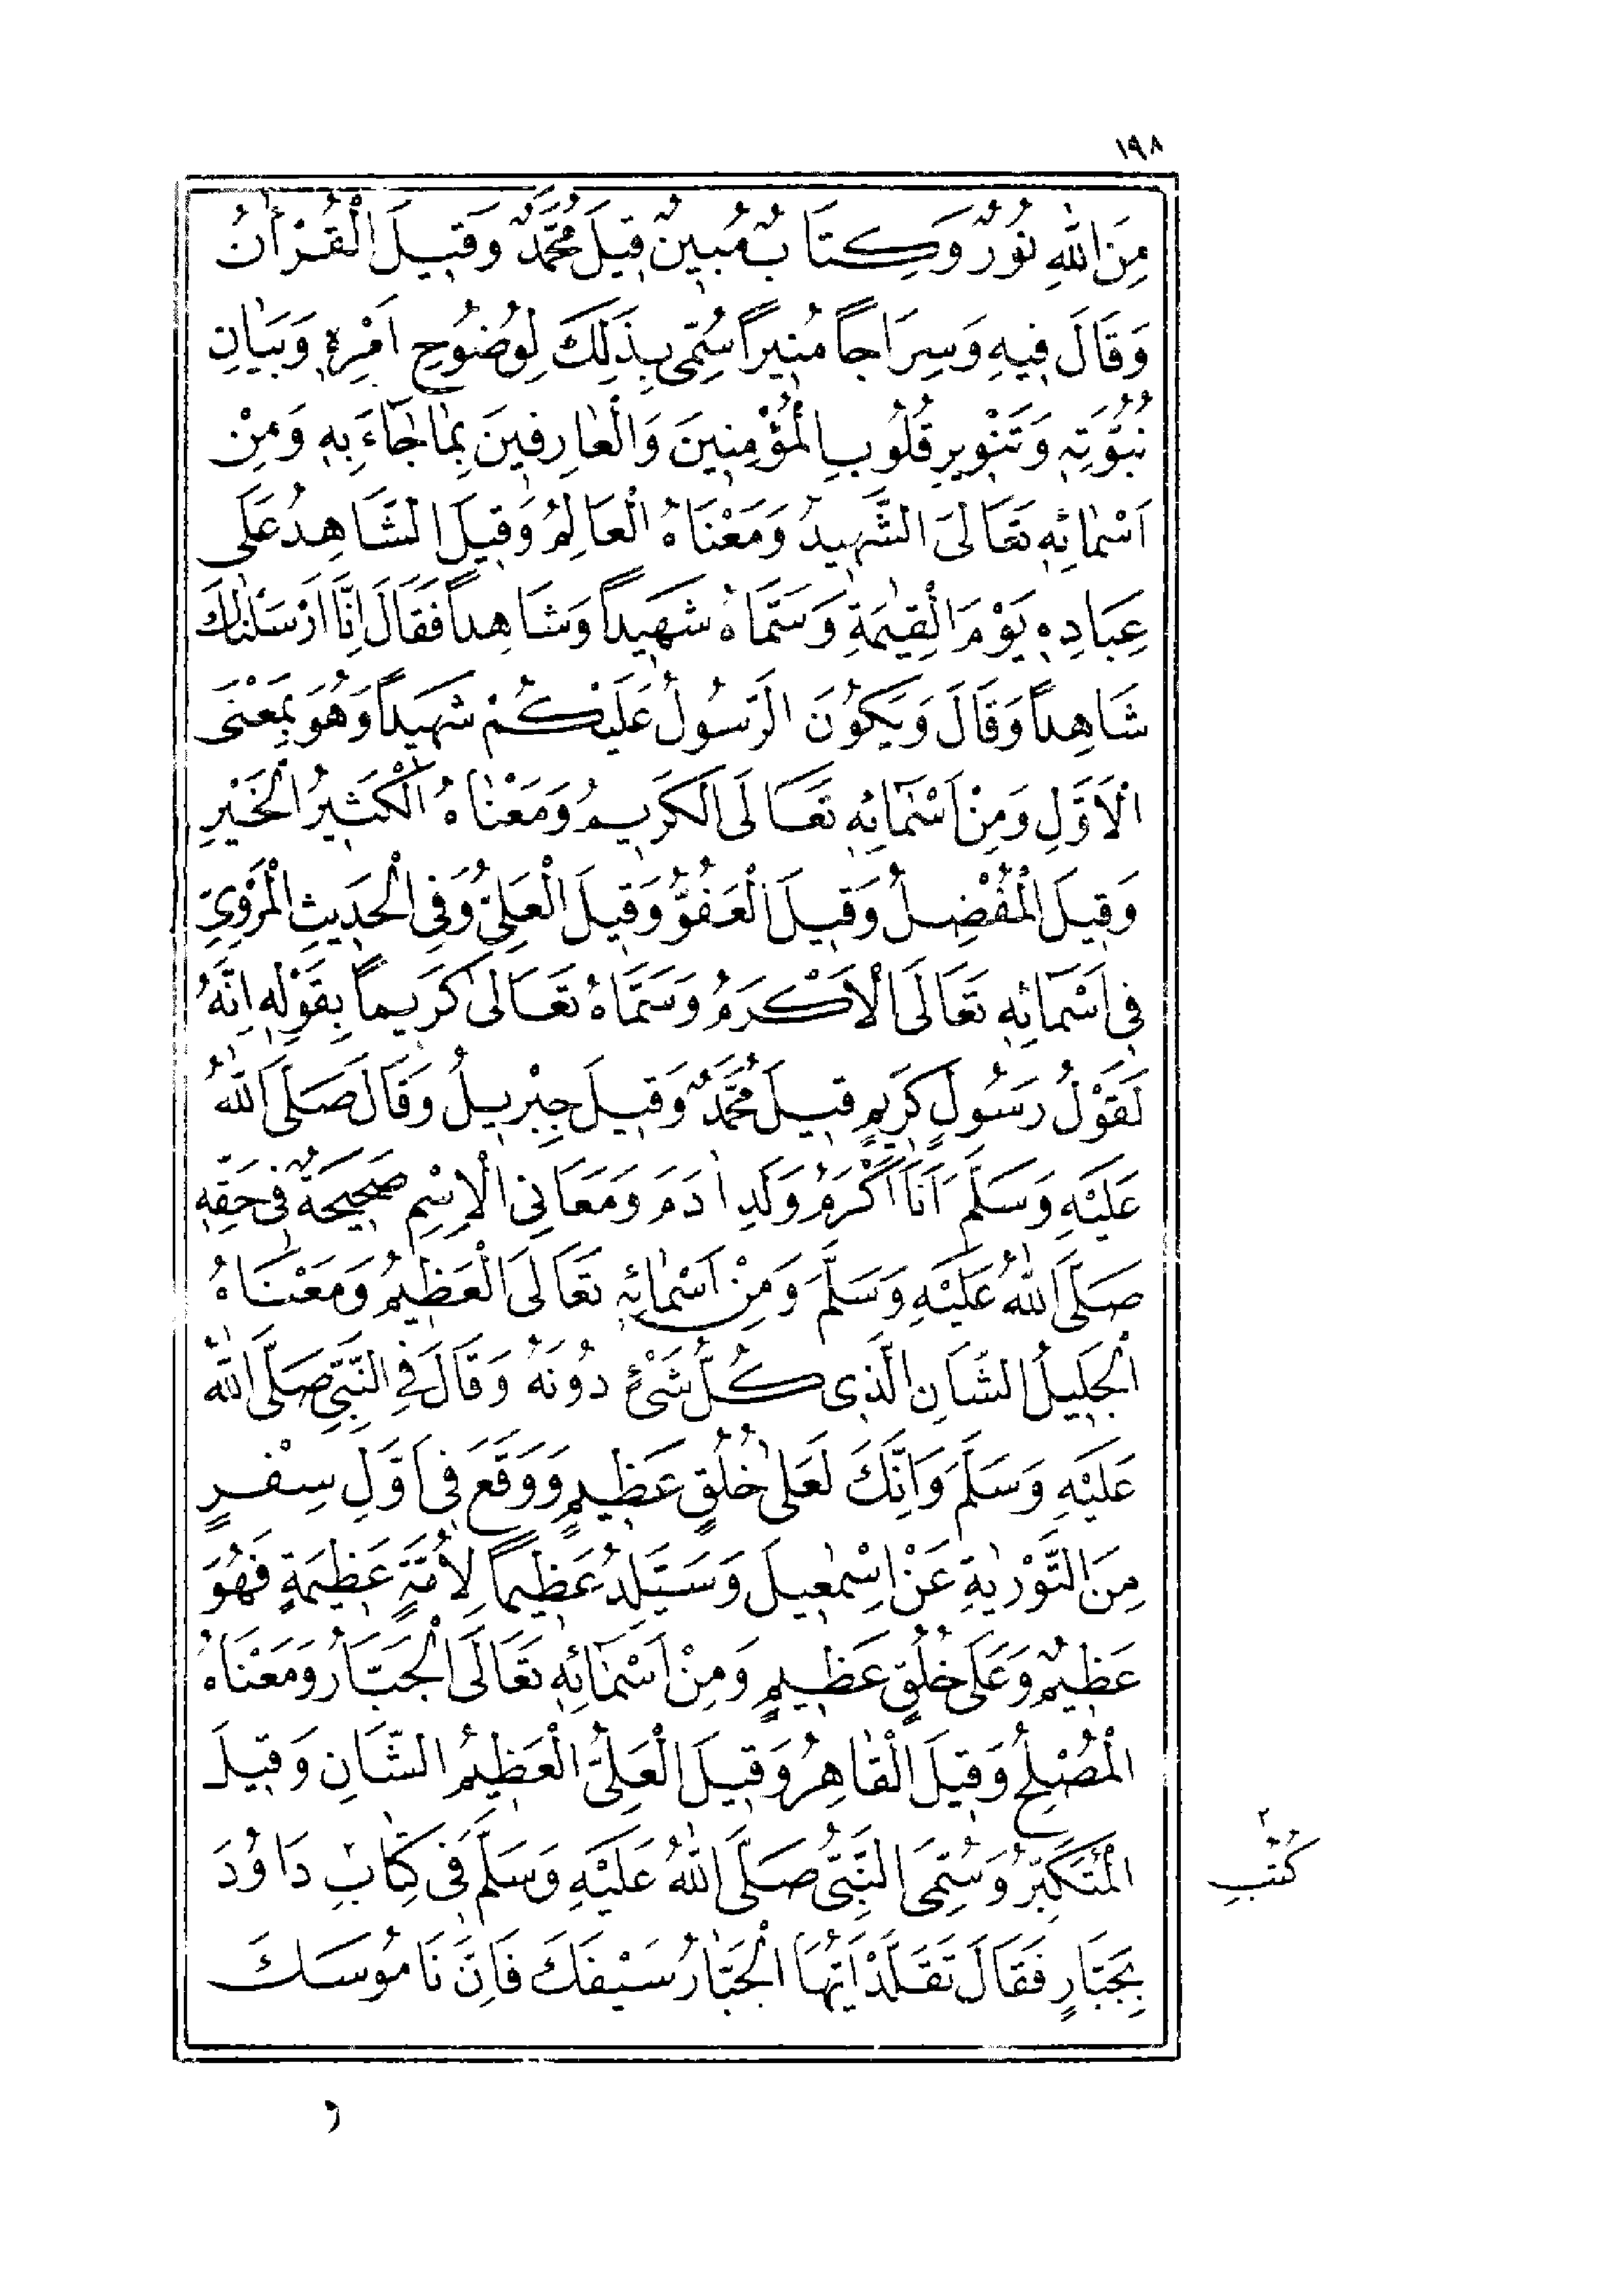 ١٩٨
مِنَ اللّٰهِ نُورٌ وَكِتَابٌ مُبِينٌ قِيلَ مُحَمَّدٌ وَقِيلَ الْقُرْاٰنُ
وَقَالَ فِيهِ وَسِرَاجاً مُنِيراً سُمِّيَ بِذَلِكَ لِوُضُوحِ اَمْرِهِ وَبَيَانِ
نُبُوَّتِهِ وَتَنْوِيرِ قُلُوبِ الْمُؤْمِنِينَ وَالْعَارِفِينَ بِمَا جَاءَ بِهِ وَمِنْ
اَسْمَائِهِ تَعَالَى الشَّهِيدُ وَمَعْنَاهُ الْعَالِمُ وَقِيلَ الشَّاهِدُ عَلَى
عِبَادِهِ يَوْمَ الْقِيٰمَةِ وَسَمَّاهُ شَهِيداً وَشَاهِداً فَقَالَ اِنَّا اَرْسَلْنَاكَ
شَاهِداً وَقَالَ وَيَكُونَ الرَّسُولُ عَلَيْكُمْ شَهِيداً وَهُوَ بِمَعْنَى
الْاَوَّلِ وَمِنْ اَسْمَائِهِ تَعَالَى الْكَرِيمُ وَمَعْنَاهُ الْكَثِيرُ الْخَيْرِ
وَقِيلَ الْمُفْضِلُ وَقِيلَ الْعَفُوُّ وَقِيلَ الْعَلِيُّ وَفِي الْحَدِيثِ الْمَرْوِيِّ
فِي اَسْمَائِهِ تَعَالَى الْاَكْرَمُ وَسَمَّاهُ تَعَالَى كَرِيماً بِقَوْلِهِ اِنَّهُ
لَقَوْلُ رَسُولٍ كَرِيمٍ قِيلَ مُحَمَّدٌ وَقِيلَ جِبْرِيلُ وَقَالَ صَلَّى اللّٰهُ
عَلَيْهِ وَسَلَّمَ اَنَا اَكْرَمُ وَلَدِ اٰدَمَ وَمَعَانِي الْاِسْمِ صَحِيحَةٌ فِي حَقِّهِ
صَلَّى اللّٰهُ عَلَيْهِ وَسَلَّمَ وَمِنْ اَسْمَائِهِ تَعَالَى الْعَظِيمُ وَمَعْنَاهُ
الْجَلِيلُ الشَّانِ الَّذِي كُلُّ شَيْءٍ دُونَهُ وَقَالَ فِي النَّبِيِّ صَلَّى اللّٰهُ
عَلَيْهِ وَسَلَّمَ وَاِنَّكَ لَعَلٰى خُلُقٍ عَظِيمٍ وَوَقَعَ فِي اَوَّلِ سِفْرٍ
مِنَ التَّوْرٰيةِ عَنْ اِسْمٰعِيلَ وَسَتَلِدُ عَظِيماً لِاُمَّةٍ عَظِيمَةٍ فَهُوَ
عَظِيمٌ وَعَلَى خُلُقٍ عَظِيمٍ وَمِنْ اَسْمَائِهِ تَعَالَى الْجَبَّارُ وَمَعْنَاهُ
الْمُصْلِحُ وَقِيلَ الْقَاهِرُ وَقِيلَ الْعَلِيُّ الْعَظِيمُ الشَّانِ وَقِيلَ
الْمُتَكَبِّرُ وَسُمِّيَ النَّبِيُّ صَلَّى اللّٰهُ عَلَيْهِ وَسَلَّمَ فِي كِتَابِ دَاوُدَ
٢
كُتُبِ
بِجَبَّارٍ فَقَالَ تَقَلَّدْ اَيُّهَا الْجَبَّارُ سَيْفَكَ فَاِنَّ نَامُوسَكَ
و